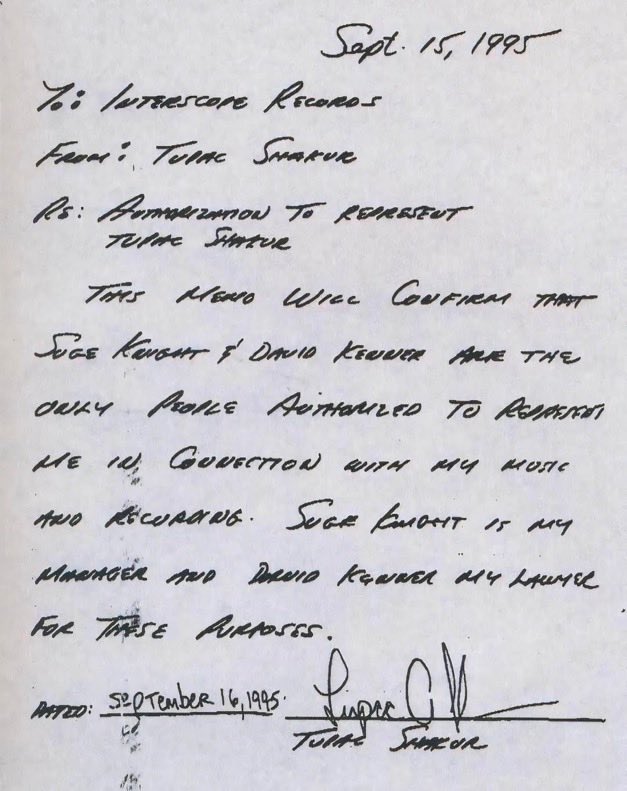 Sept. 15, 1995
To: INTERSCOPE RECORDS
FROM: TUPAC SHAKUR
RE: AUTHORIZATION TO REPRESENT
TUPAC SHAKUR
THIS MEMO WILL CONFIRM THAT
SUGE KNIGHT & DAVID KENNER ARE THE
ONLY PEOPLE AUTHORIZED TO REPRESENT
ME IN CONNECTION WITH MY MUSIC
AND RECORDING. SUGE KNIGHT IS MY
MANAGER AND DAVID KENNER MY LAWYER
FOR THESE PURPOSES.
DATED: SEPTEMBER 16, 1995.
TUPAC SHAKUR